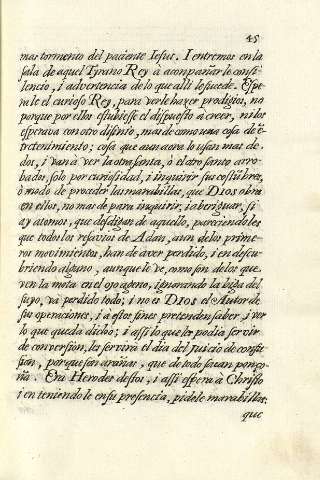 45
mas tormento del paciente Iesus. I entremos en la
sala de aquel Tyrano Rey à acompañarlo con si-
lencio, i advertencia de lo que alli le sucede. Espe-
rale el curioso Rey, para verle hazer prodigios, no
porque por ellos estubiesse el dispuesto à creer, ni los
esperava con otro disinio, mas de como una cosa de e-
tretenimiento; cosa que aun aora lo usan mas de
dos, i van à ver la otra santa, ò el otro santo arro-
bados, solo por curiosidad, i inquirir sus costũbres,
ò modo de proceder las marabillas, que Dios obra
en ellos, no mas de para inquirir, i aberiguar, si
ay atomos, que desdigan de aquello, pareciendoles
que todos los resavios de Adan, aun de los prime-
ros movimientos, han de aver perdido, i en descu-
briendo alguno, aunque le ve, como son de los que
ven la mota en el ojo ageno, ignorando la biga del
suyo, va perdido todo; i no es Dios el Autor de
sus operaciones, i à estos fines pretenden saber, i ver
lo que queda dicho; i assi lo que les podia servir
de conversion, les servirà el dia del juicio de confu-
sion, porque son arañas, que de todo sacan ponço-
ña. Era Herodes destos, i assi esperò à Christo
i en teniendole en su presencia, pidele marabillas,
que